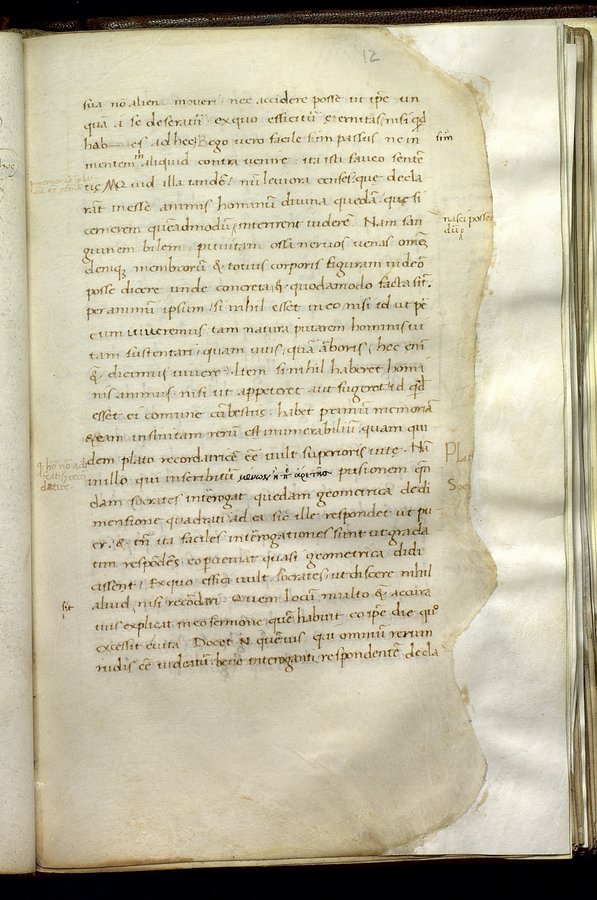 12
sua nō aliena moveri. nec accidere posse ut ipe un
quā a se deseratur. ex quo efficitur eternitas, nisi qd
hab es ad hec. Ego vero facile sim passus ne in
sim
mentem m aliquid contra venire. ita isti faveo senten
tie, M Quid illa tandē. nū leviora censes. que decla
rāt inesse animis hominū divina quedā. que si
cernerem quēadmodū interirent viderē. Nam san
nasci posse
guinem bilem. pituitam ossa nervos venas omē,
deniq, membrorū & totius corporis figuram videor
posse dicere unde concreta, & quodamodo facta sit.
per animū ipsum. si nihil esset in eo nisi id ut per
eum viveremus tam natura putarem hominis vi
tam sustentari. quam vitis, quā arboris. hec eni
dicimus vivere. Item si nihil haberet homi
nis animus. nisi ut appeteret aut fugeret. id qd
esset ei comune cū bestiis. habet primū memoriā
& eam infinitam rerū est innumerabiliū. quam qui
dem plato recordatricē eē vult superioris vite. Nā
Pla
in illo qui inscribitur μενων η π ἀρετησ pusionem qn
dam socrates interrogat quedam geometrica de di
Soc
mensione quadrati. ad ea sic ille respondet ut pu
er. & tn ita faciles interrogationes sunt ut grada
tim respondēs eo perveniat quasi geometrica didi
cissent. Ex quo effici vult socrates. ut discere nihil
aliud, nisi recordari. Quem locū multo & accura
sit
tius explicat in eo sermone quē habuit eo ipe die quo
excessit e vita. Docet N quēvis qui omniū rerum
rudis eē videatur. bene interroganti respondentē decla